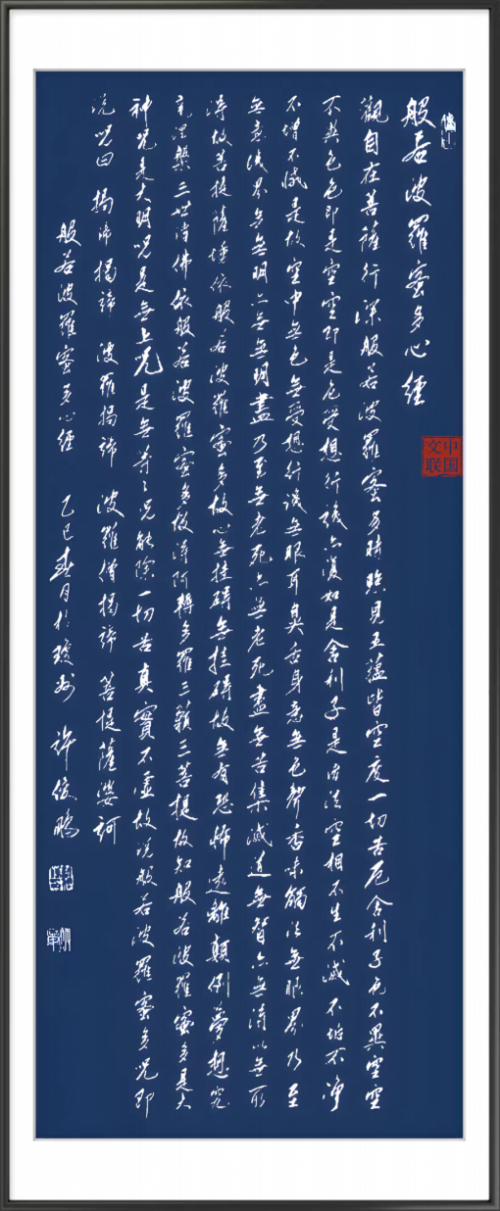 般若波羅蜜多心經
中国文联
觀自在菩薩行深般若波羅蜜多時照見五蘊皆空度一切苦厄舍利子色不異空空
不異色色即是空空即是色受想行識亦復如是舍利子是諸法空相不生不滅不垢不淨
不增不減是故空中無色無受想行識無眼耳鼻舌身意無色聲香味觸法無眼界乃至
無意識界無無明亦無無明盡乃至無老死亦無老死盡無苦集滅道無智亦無得以無所
得故菩提薩埵依般若波羅蜜多故心無挂碍無挂碍故無有恐怖遠離顛倒夢想究
竟涅槃三世諸佛依般若波羅蜜多故得阿耨多羅三藐三菩提故知般若波羅蜜多是大
神咒是大明咒是無上咒是無等々咒能除一切苦真實不虛故說般若波羅蜜多咒即
說咒曰 揭諦揭諦 波羅揭諦 波羅僧揭諦 菩提薩婆訶
般若波羅蜜多心經 乙巳春月於瓊州 許俊鵬